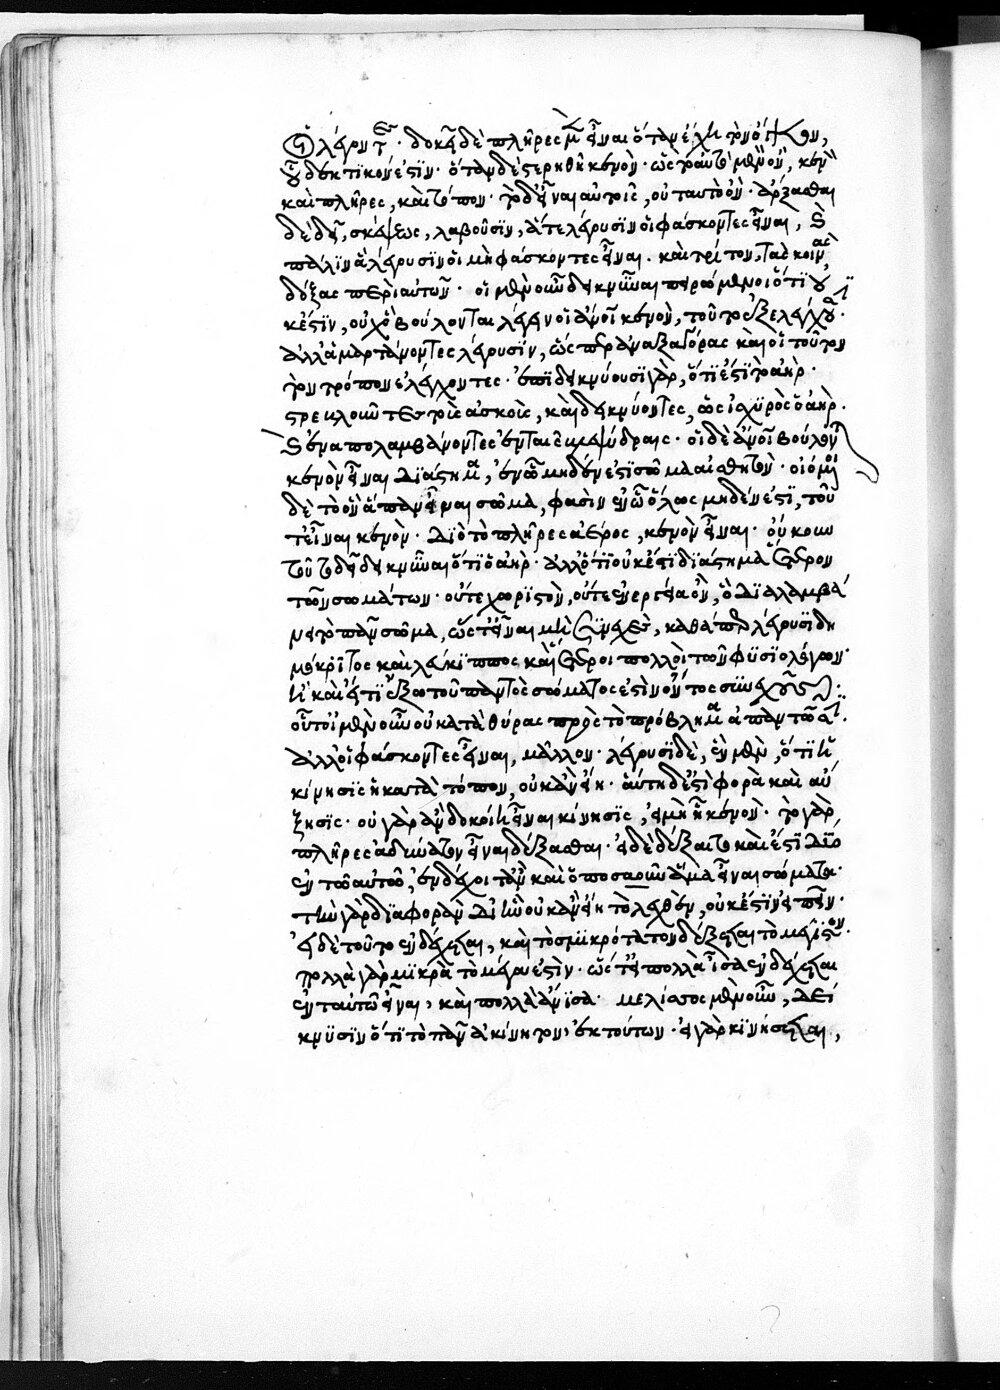 οἱ λέγοντες· δοκεῖ δὲ πλῆρες μὲν εἶναι ὅταν ἔχη τὸν ὄγκον,
οὗ δεκτικόν ἐστιν· ὅταν δὲ στερηθῆ κενόν· ὡς ταὐτὸ μὲν ὂν, κενὸν
καὶ πλῆρες, καὶ τόπον· τὸ δ' εἶναι αὐτοῖς, οὐ ταυτὸ ὄν· ἄρξασθαι
δὲ δεῖ σκέψεως, λαβοῦσιν, ἅ τε λέγουσιν οἱ φάσκοντες εἶναι, καὶ
πάλιν ἃ λέγουσιν οἱ μὴ φάσκοντες εἶναι. καὶ τρίτον, τὰς κοινὰς
δόξας περὶ αὐτῶν· οἱ μὲν οὖν δεικνύναι πειρώμενοι ὅτι οὐ
κ ἔστιν, οὐχ ὃ βούλονται λέγειν οἱ ἄνθρωποι κενὸν, τοῦτο ἐξελέγχουσιν·
ἀλλ' ἁμαρτάνοντες λέγουσιν, ὥσπερ ἀναξαγόρας καὶ οἱ τοῦτον
τὸν τρόπον ἐλέγχοντες· ἐπιδεικνύουσι γὰρ, ὅτι ἐστὶ τὶ ὁ ἀήρ·
στρεβλοῦντες τοὺς ἀσκοὺς, καὶ δεικνύοντες, ὡς ἰσχυρὸς ὁ ἀήρ.
καὶ ἐναπολαμβάνοντες ἐν ταῖς κλεψύδραις· οἱ δὲ ἄνθρωποι βούλονται
κενὸν εἶναι διάστημα, ἐν ᾧ μηδέν ἐστι σῶμα αἰσθητόν· οἰόμενοι
δὲ τὸ ὂν ἅπαν εἶναι σῶμα, φασὶν ἐν ᾧ ὅλως μηδέν ἐστι, τοῦ
τ' εἶναι κενὸν· διὸ τὸ πλῆρες ἀέρος, κενὸν εἶναι· οὔκουν
τοῦτο δεῖ δεικνύναι ὅτι τὶ ὁ ἀήρ· ἀλλ' ὅτι οὐκ ἔστι διάστημα ἕτερον
τῶν σωμάτων· οὔτε χωριστὸν, οὔτε ἐνεργείᾳ ὂν, ὃ διαλαμβά
νει τὸ πᾶν σῶμα, ὥστ' εἶναι μὴ συνεχὲς, καθάπερ λέγουσι δη
μόκριτος καὶ λεύκιππος καὶ ἕτεροι πολλοὶ τῶν φυσιολόγων·
ἢ καὶ εἴ τι ἔξω τοῦ παντὸς σώματος ἐστὶν ὄντος συνεχοῦς·
οὗτοι μὲν οὖν οὐ κατὰ θύρας πρὸς τὸ πρόβλημα ἀπαντῶσιν·
ἀλλ' οἱ φάσκοντες εἶναι, μᾶλλον· λέγουσι δὲ, ἓν μὲν, ὅτι ἡ
κίνησις ἡ κατὰ τόπον, οὐκ ἂν εἴη· αὕτη δ' ἐστὶ φορὰ καὶ αὔ
ξησις· οὐ γὰρ ἂν δοκοίη εἶναι κίνησις, εἰ μὴ εἴη κενὸν· τὸ γὰρ
πλῆρες ἀδύνατον εἶναι δέξασθαι· εἰ δὲ δέξαιτο καὶ ἔσται δύο
ἐν τῶ αὐτῶ, ἐνδέχοιτ' ἂν καὶ ὁποσαοῦν ἅμα εἶναι σώματα·
τὴν γὰρ διαφορὰν δι' ἣν οὐκ ἂν εἴη τὸ λεχθὲν, οὐκ ἔστιν εἰπεῖν·
εἰ δὲ τοῦτο ἐνδέχεται, καὶ τὸ σμικρότατον δέξεται τὸ μέγιστον.
πολλὰ γὰρ μικρὰ τὸ μέγα ἐστὶν· ὥστ' εἰ πολλὰ ἴσα ἐνδέχεται
ἐν ταυτῶ εἶναι, καὶ πολλὰ ἄνισα· μέλισσος μὲν οὖν, δεί
κνυσιν ὅτι τὸ πᾶν ἀκίνητον, ἐκ τούτων· εἰ γὰρ κινήσεται,